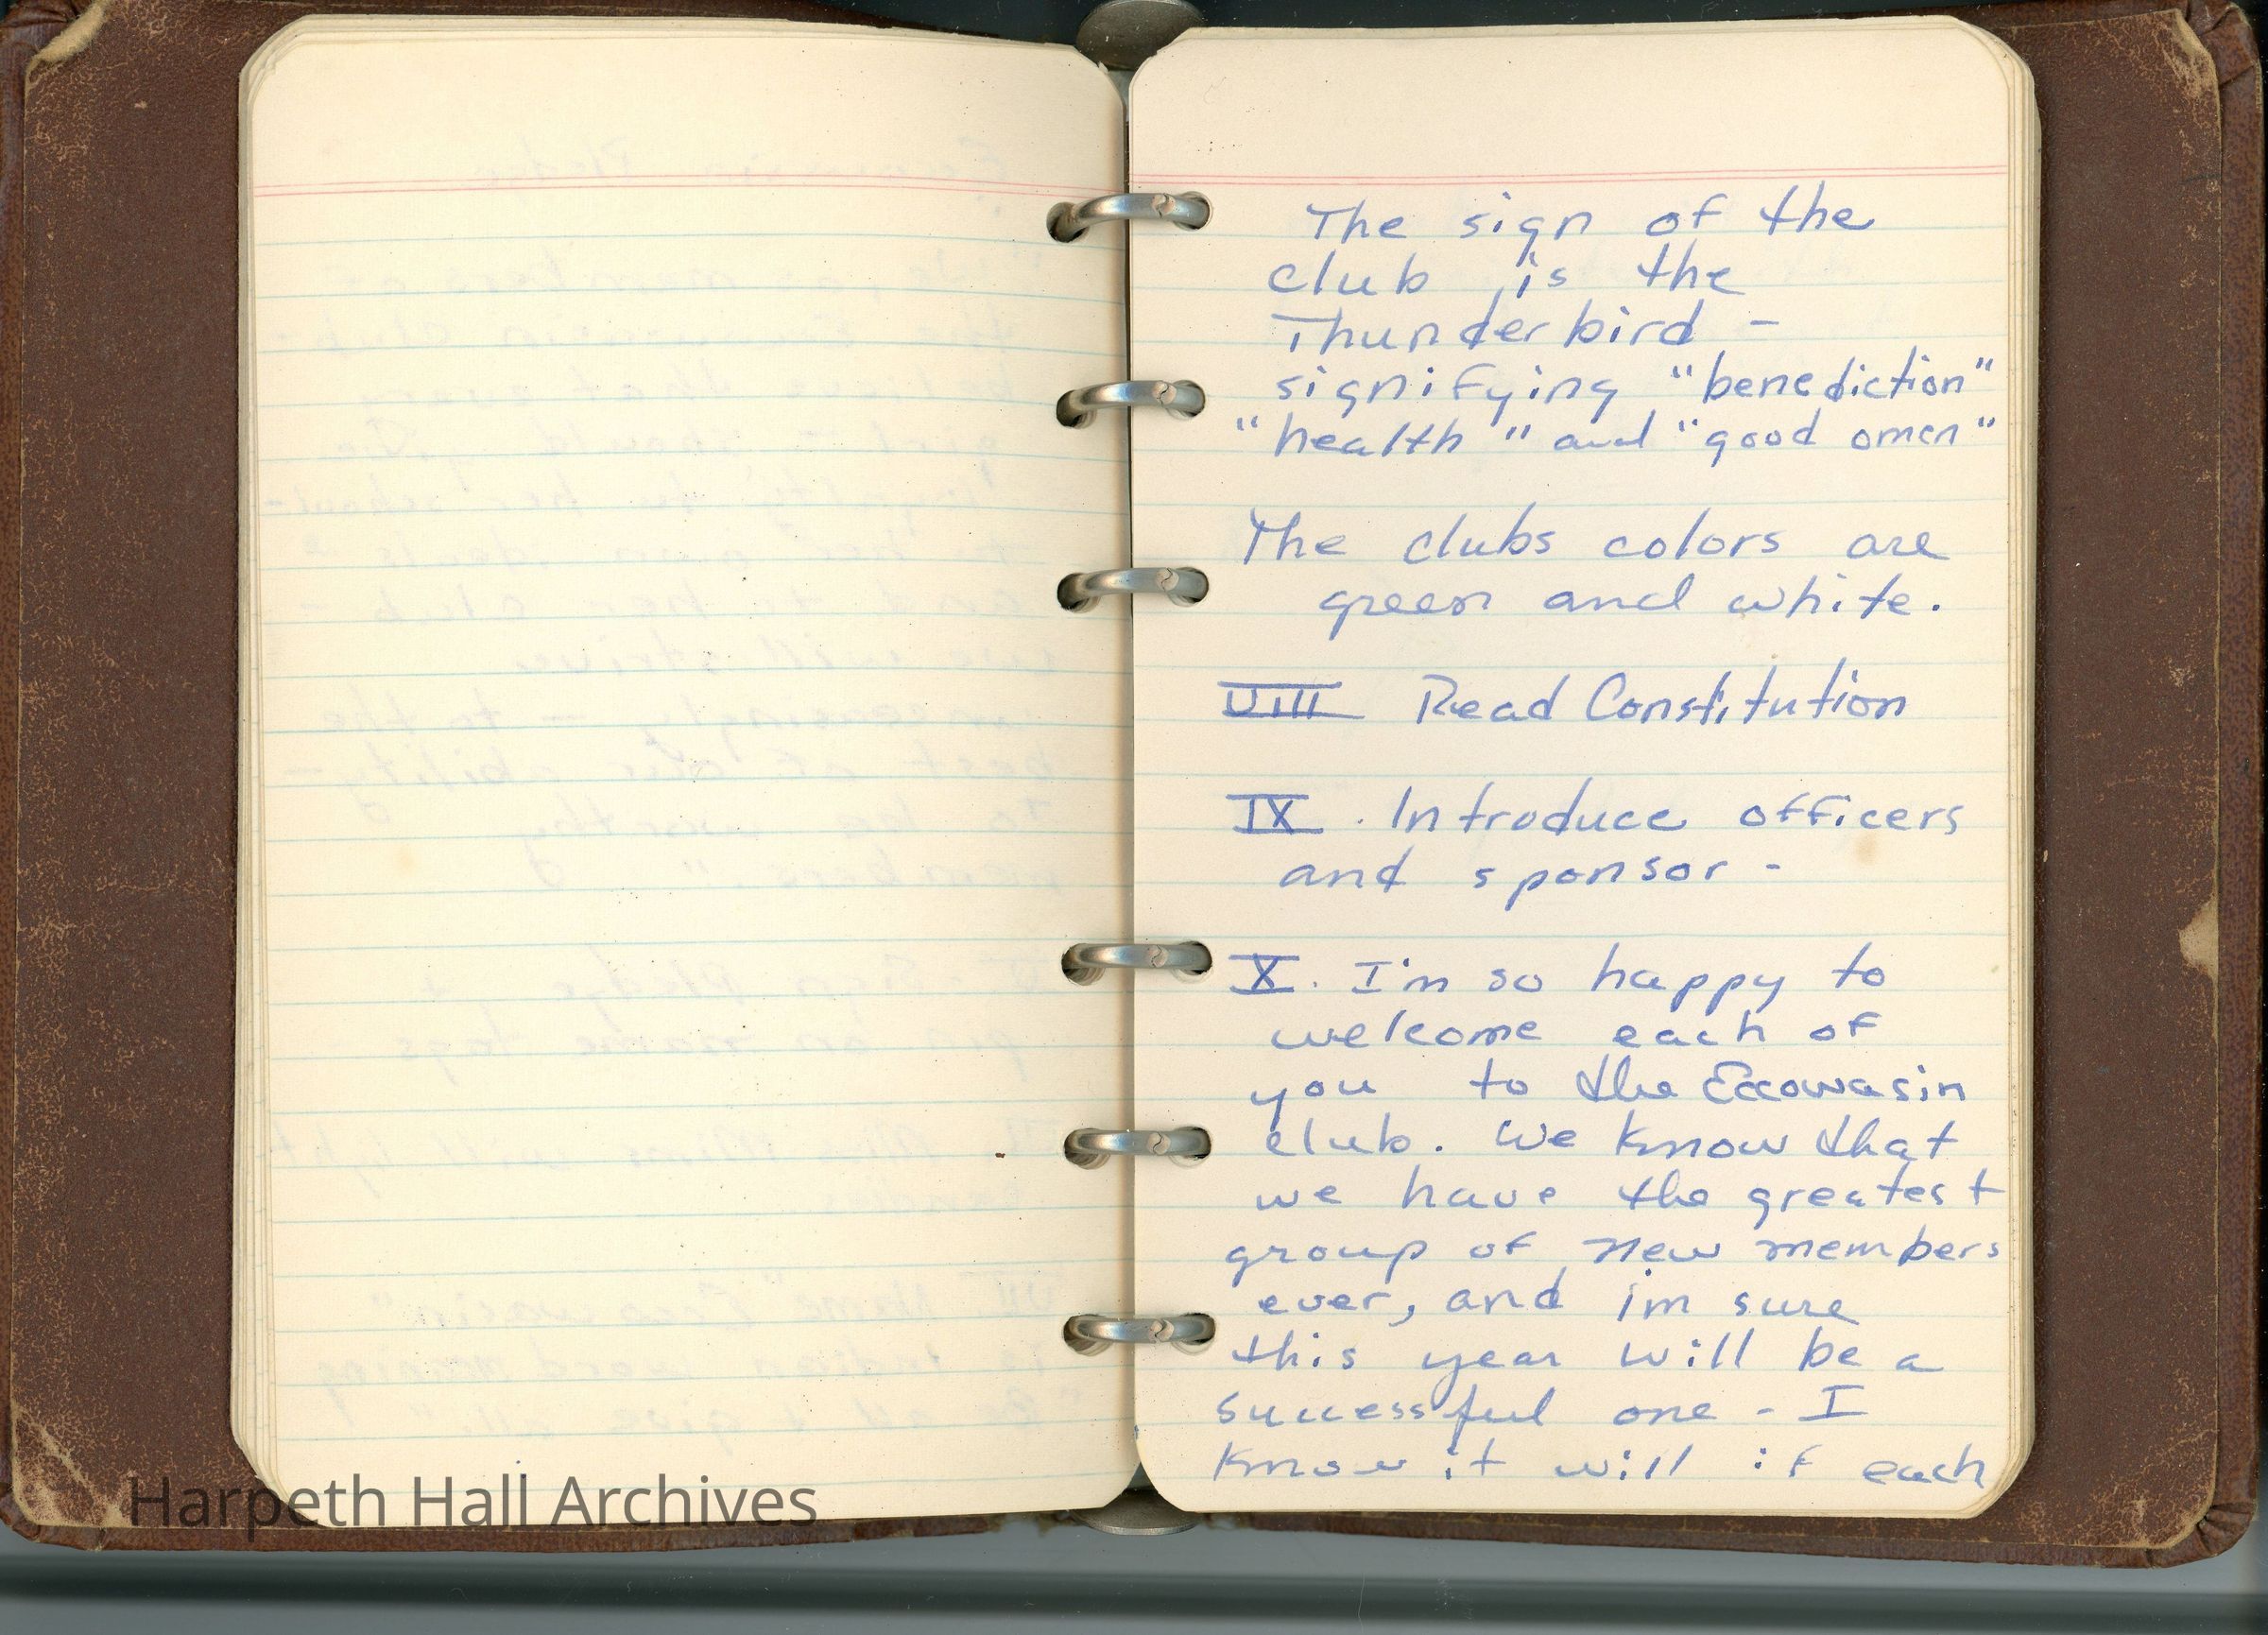 The sign of the
club is the
Thunderbird -
signifying "benediction"
"health" and "good omen"
The clubs colors are
green and white.
VIII Read Constitution
IX. Introduce officers
and sponsor -
X. I'm so happy to
welcome each of
you to the Eccowasin
club. We know that
we have the greatest
group of new members
ever, and im sure
this year will be a
successful one - I
know it will if each
Harpeth Hall Archives